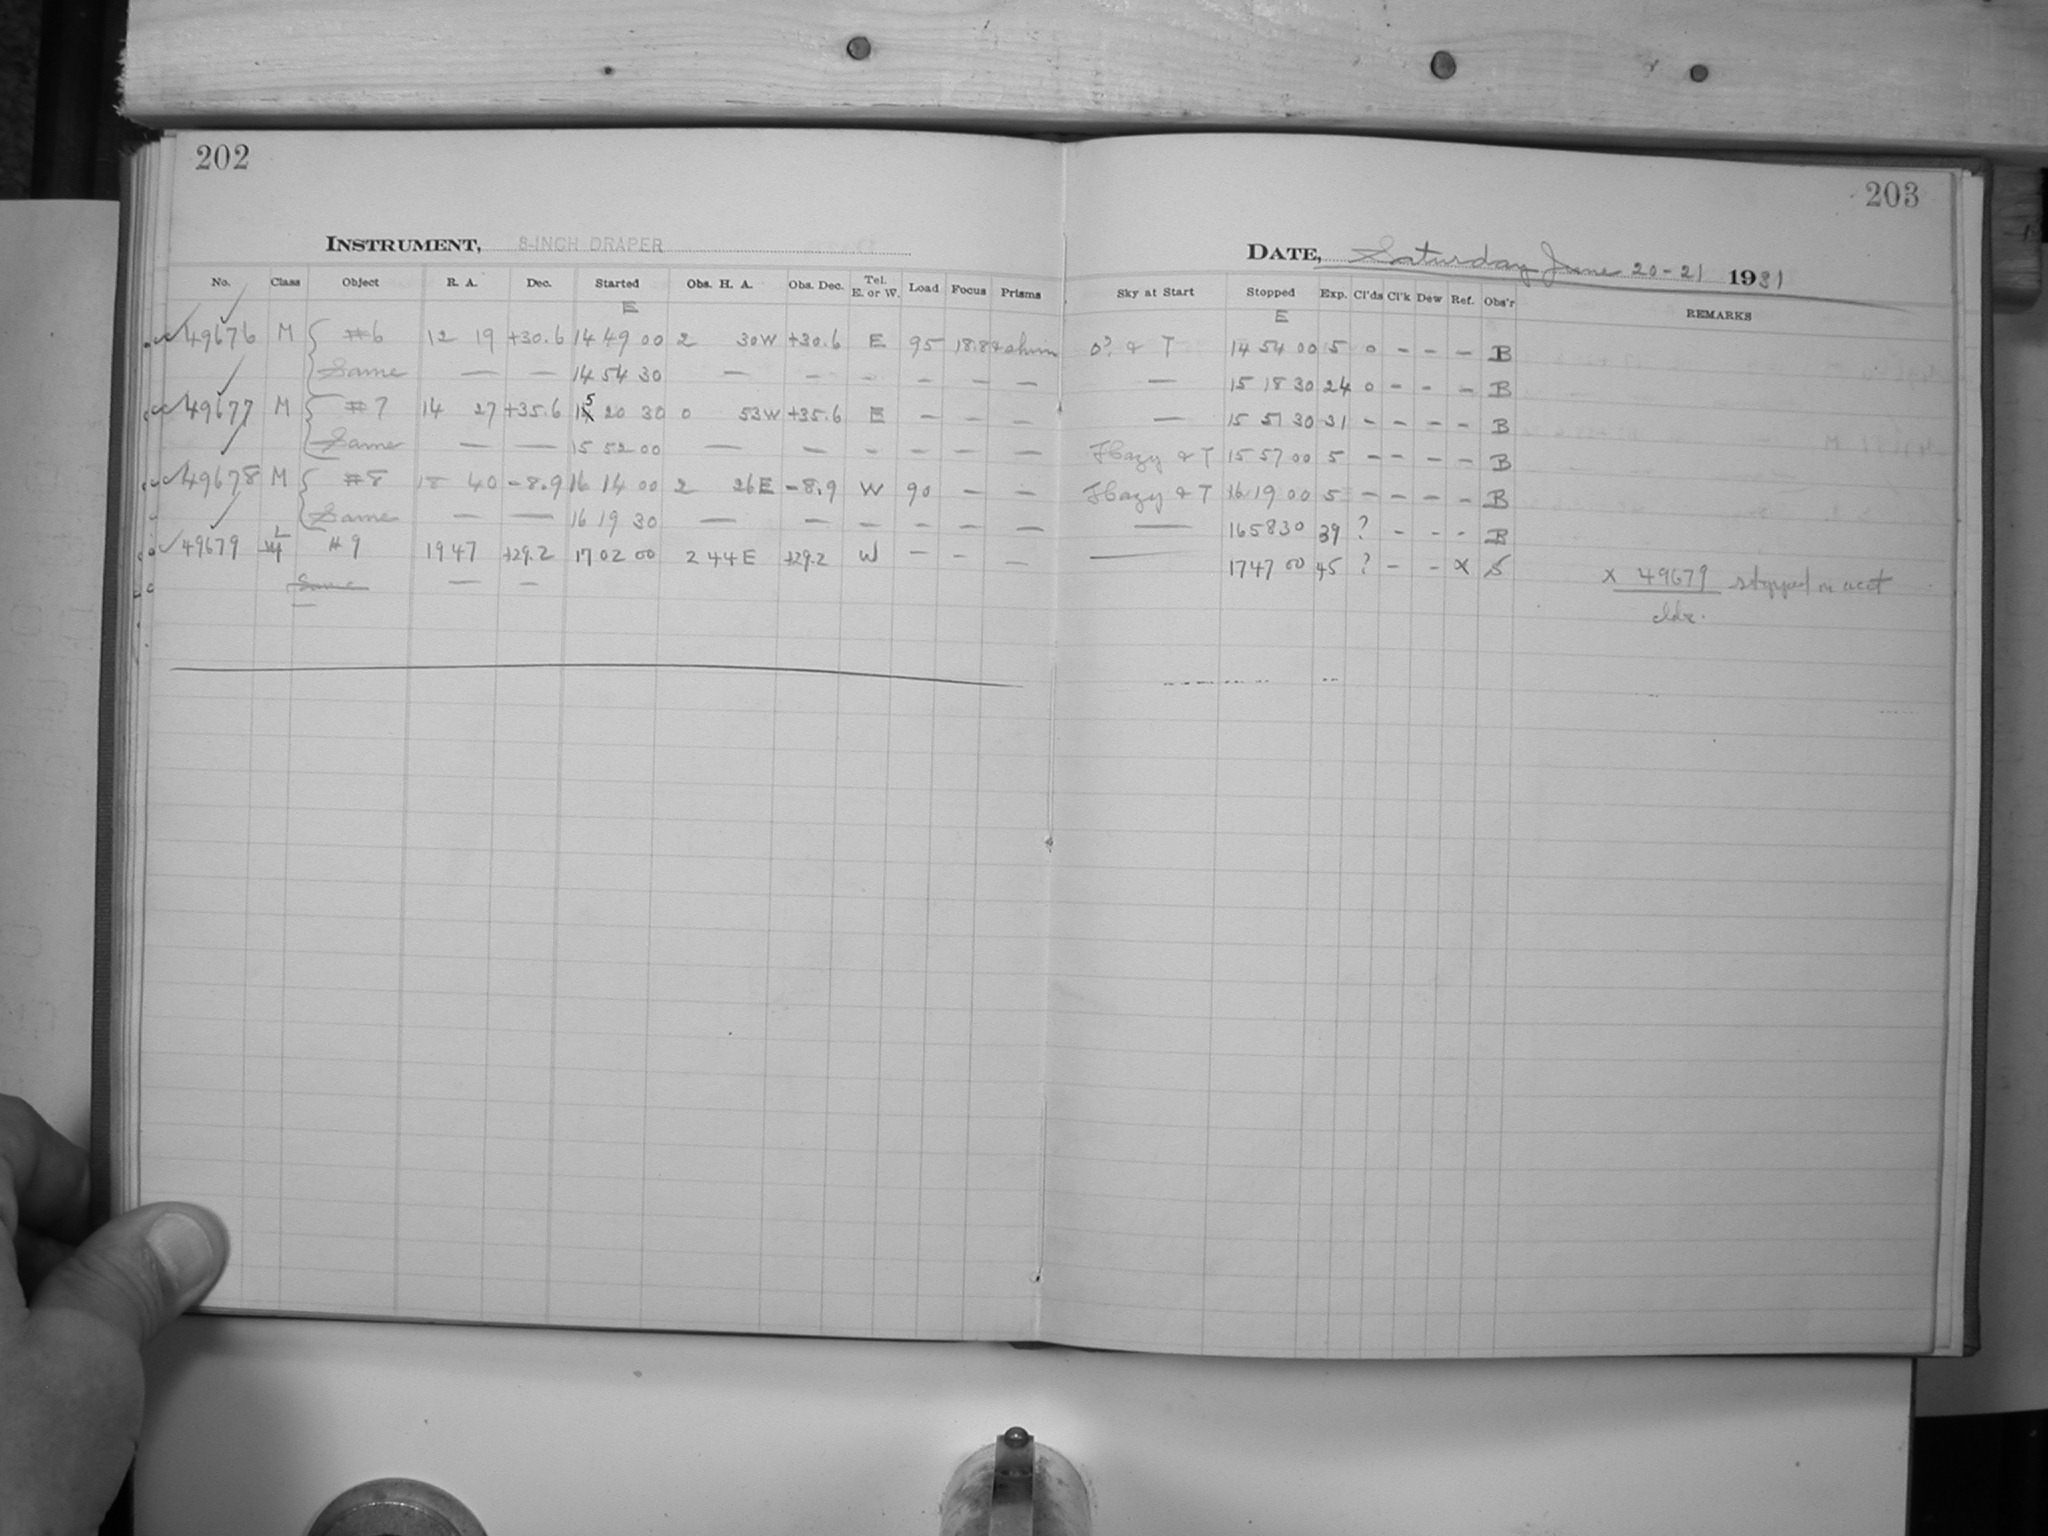 202
INSTRUMENT, 8-INCH DRAPER
No. Class Object R. A. Dec. Started Obs. H. A. Obs. Dec. Tel. E. or W. Load Focus Prisms
E
49676 M #6 12 19 +30.6 14 49 00 2 30W +30.6 E 95 18.8
Same — — 14 54 30 — — — — — —
49677 M #7 14 27 +35.6 15 20 30 0 53W +35.6 E — — —
Same — — 15 52 00 — — — — — —
49678 M #8 18 40 -8.9 16 14 00 2 26E -8.9 W 90 — —
Same — — 16 19 30 — — — — — —
49679 L #9 19 47 +29.2 17 02 00 2 44E +29.2 W — — —
Same — —
203
DATE, Saturday June 20-21 1931
Sky at Start Stopped Exp. Cl'ds Cl'k Dew Ref. Obs'r REMARKS
E
0? & T 14 54 00 5 0 - - - B
— 15 18 30 24 0 - - - B
— 15 51 30 31 - - - - B
Hazy & T 15 57 00 5 - - - - B
Hazy & T 16 19 00 5 - - - - B
— 16 58 30 39 ? - - - B
— 17 47 00 45 ? - - x S x 49679 stopped on acct
clds.